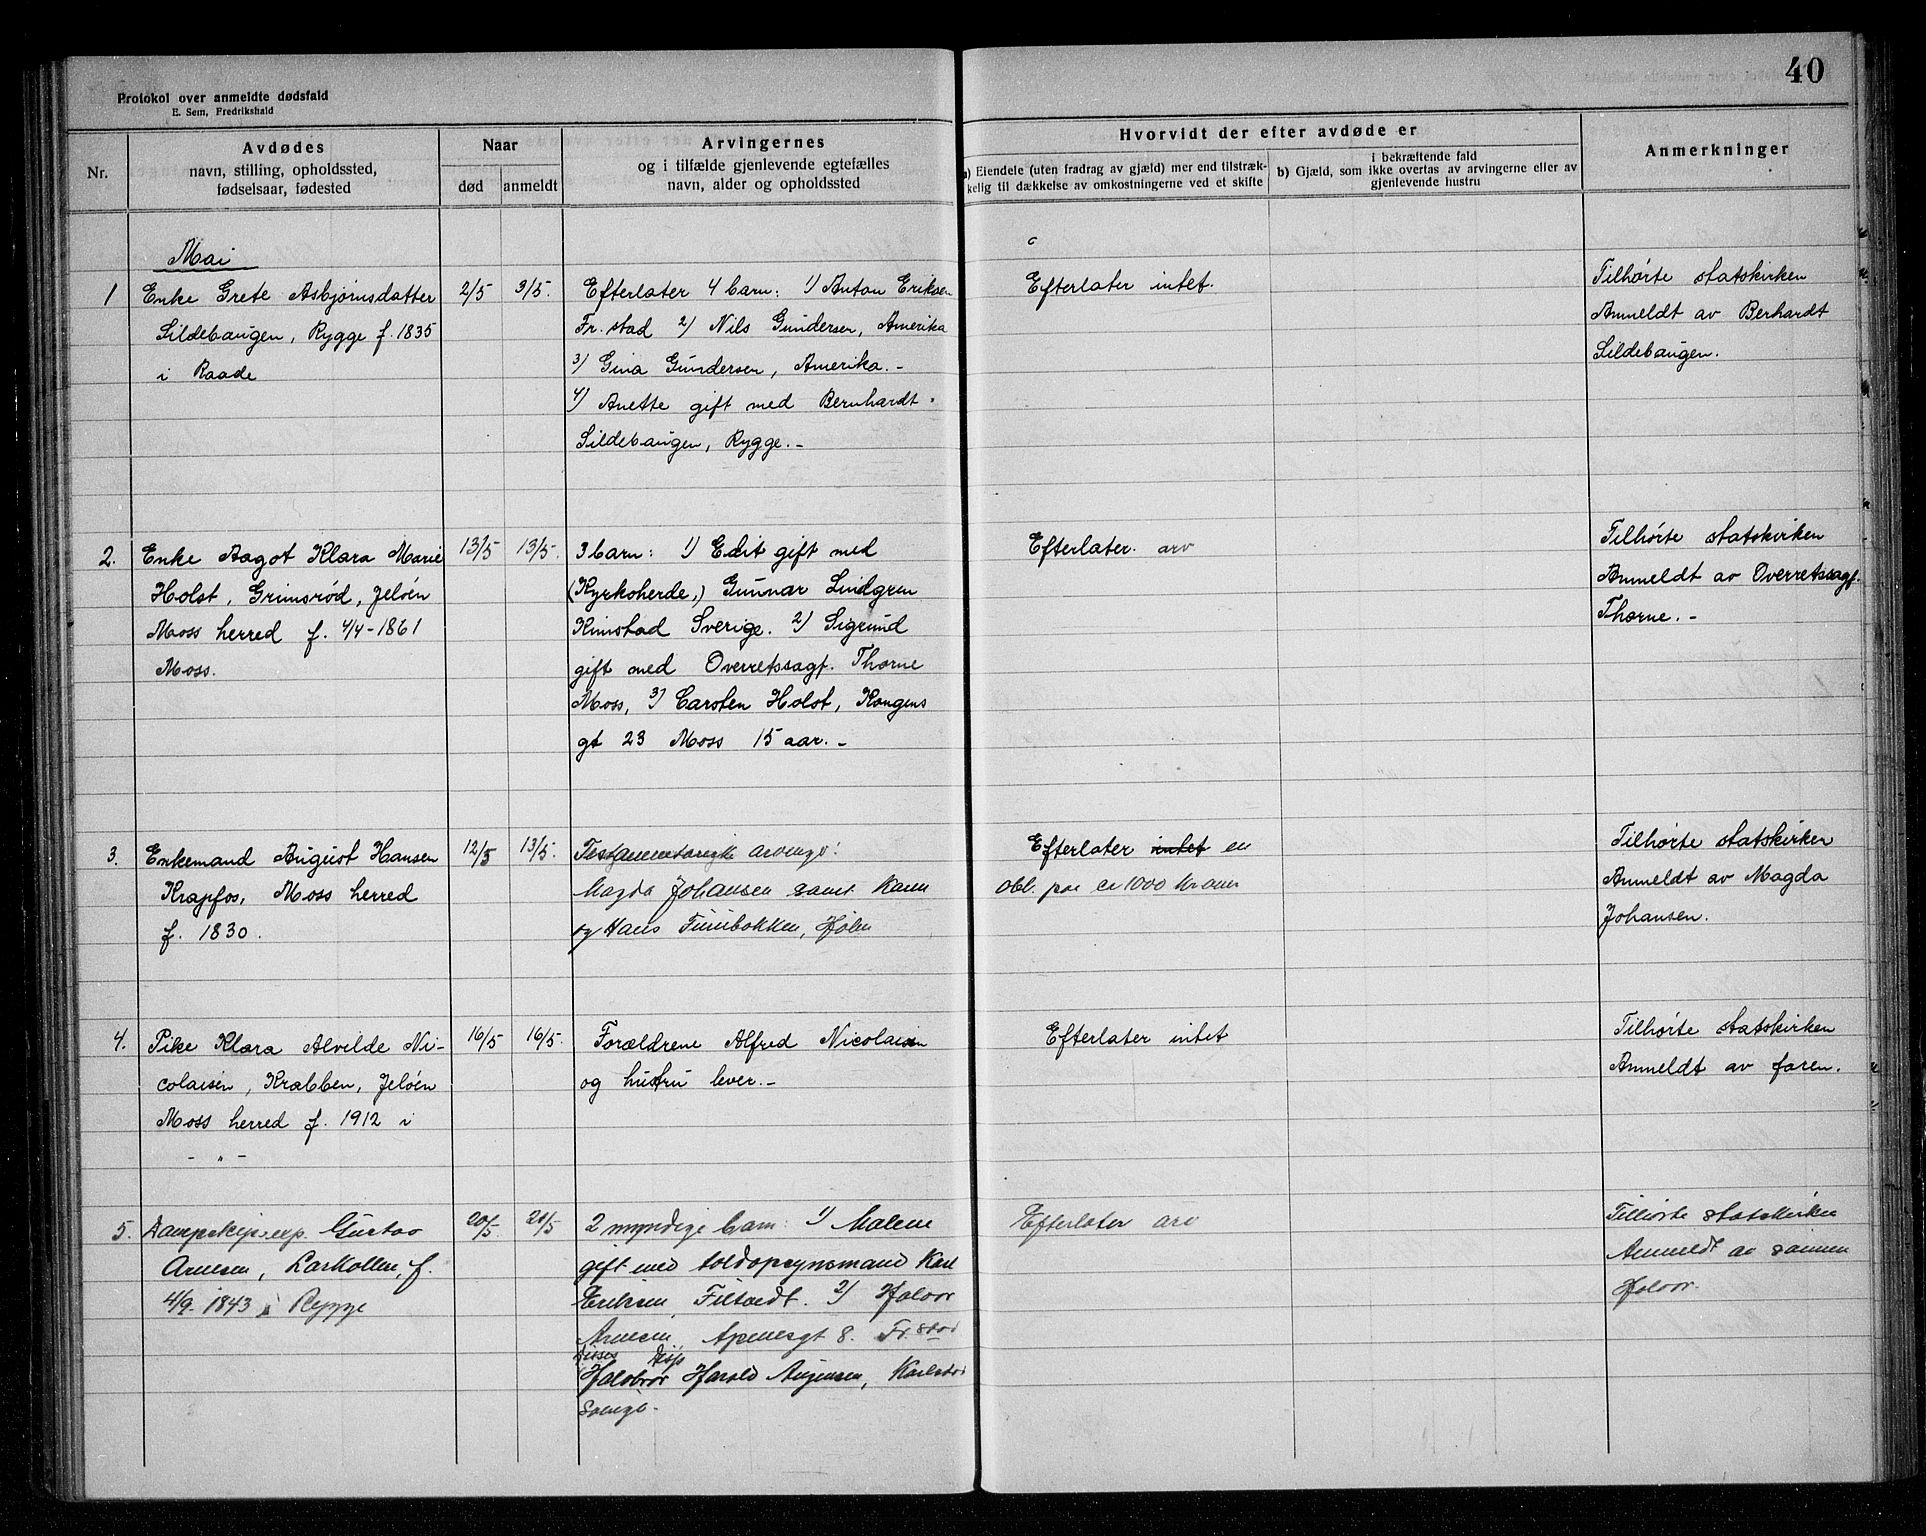 40
Protokol over anmeldte dødsfald
E. Sem, Fredrikshald
Nr.
Avdødes
navn, stilling, opholdssted,
fødselsaar, fødested
Naar
død
anmeldt
Arvingernes
og i tilfælde gjenlevende egtefælles
navn, alder og opholdssted
Hvorvidt der efter avdøde er
a) Eiendele (uten fradrag av gjæld) mer end tilstræk-
kelig til dækkelse av omkostningerne ved et skifte
i bekræftende fald
b) Gjæld, som ikke overtas av arvingerne eller av
gjenlevende hustru
Anmerkninger
Mai
1
Enke Grete Asbjørnsdatter
Sildebaugen, Rygge f. 1835
i Raade
2/5
3/5.
Efterlater 4 barn: 1) Anton Eriksen
Fr.stad 2) Nils Gundersen, Amerika
3) Gina Gundersen, Amerika. -
4) Anette gift med Bernhardt
Sildebaugen, Rygge. -
Efterlater intet.
Tilhørte statskirken
Anmeldt av Berhardt
Sildebaugen.
2.
Enke Aagot Klara Marie
Holst, Grimsrød, Jeløen
Moss herred f. 4/4-1861
Moss.
13/5
13/5.
3 barn: 1) Edit gift med
(Kyrkoherde,) Gunnar Lindgren
Kimstad Sverige. 2) Sigrund
gift med Overretssagf. Thorne
Moss, 3) Carsten Holst, Kongens
gt 23 Moss 15 aar. -
Efterlater arv
Tilhørte statskirken
Anmeldt av Overretssagf.
Thorne. -
3.
Enkemand August Hansen
Krapfos, Moss herred
f. 1830.
12/5
13/5.
Testamentarigte arvinge:
Magda Johansen samt Karen
og Hans Furubakken, Hølen
Efterlater intet en
obl. paa ca 1000 kroner
Tilhørte statskirken
Anmeldt av Magda
Johansen.
4.
Pike Klara Alvilde Ni-
colaisen, Krabben, Jeløen
Moss herred f. 1912 i
- " -
16/5
16/5.
Forældrene Alfred Nicolaisen
og hustru lever. -
Efterlater intet
Tilhørte statskirken
Anmeldt av faren.
5.
Dampskipsexp. Gustav
Arnesen, Larkollen, f.
4/9. 1843 i Rygge
20/5
21/5
2 myndige barn: 1) Malene
gift med toldopsynsmand Karl
Eriksen, Filtvedt. 2) Halvor
Arnesen, Apenesgt 8. Fr.stad
Disp
Halvbror Harald Arnesen, Karlstad
Sverige.
Efterlater arv
Tilhørte statskirken
Anmeldt av sønnen
Halvor.